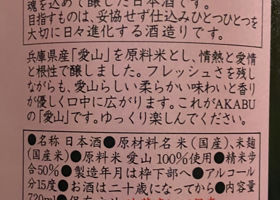 魂を込めて醸した日本酒です。
目指すものは、妥協せず仕込みひとつひとつを
大切に日々進化する酒造りです。
兵庫県産「愛山」を原料米とし、情熱と愛情
と根性で醸しました。フレッシュさを残し
ながらも、愛山らしい柔らかい味わいと香
りが優しく口中に広がります。これがAKABU
の「愛山」です。ゆっくり楽しんでください。
●名称 日本酒●原材料名 米(国産)、米麹
(国産米)●原料米 愛山 100%使用●精米歩
合50% ●製造年月は枠下部へ●アルコール
分15度●お酒は二十歳になってから●内容量
720ml